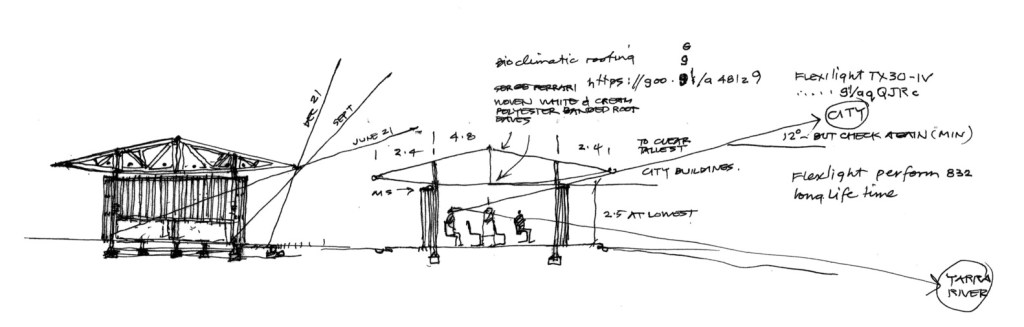 Bioclimatic roofing
https://goo.gl/a48129
SERGE FERRARI
WOVEN WHITE & CREAM
POLYESTER BANDED ROOF
EAVES
Flexilight TX30-IV
CITY
12° BUT CHECK AGAIN (MIN)
Flexlight perform 832
long life time
DEC 21
SEPT
JUNE 21
2.4
4.8
2.4
TO CLEAR
TALLEST
CITY BUILDINGS.
MS
2.5 AT LOWEST
YARRA
RIVER